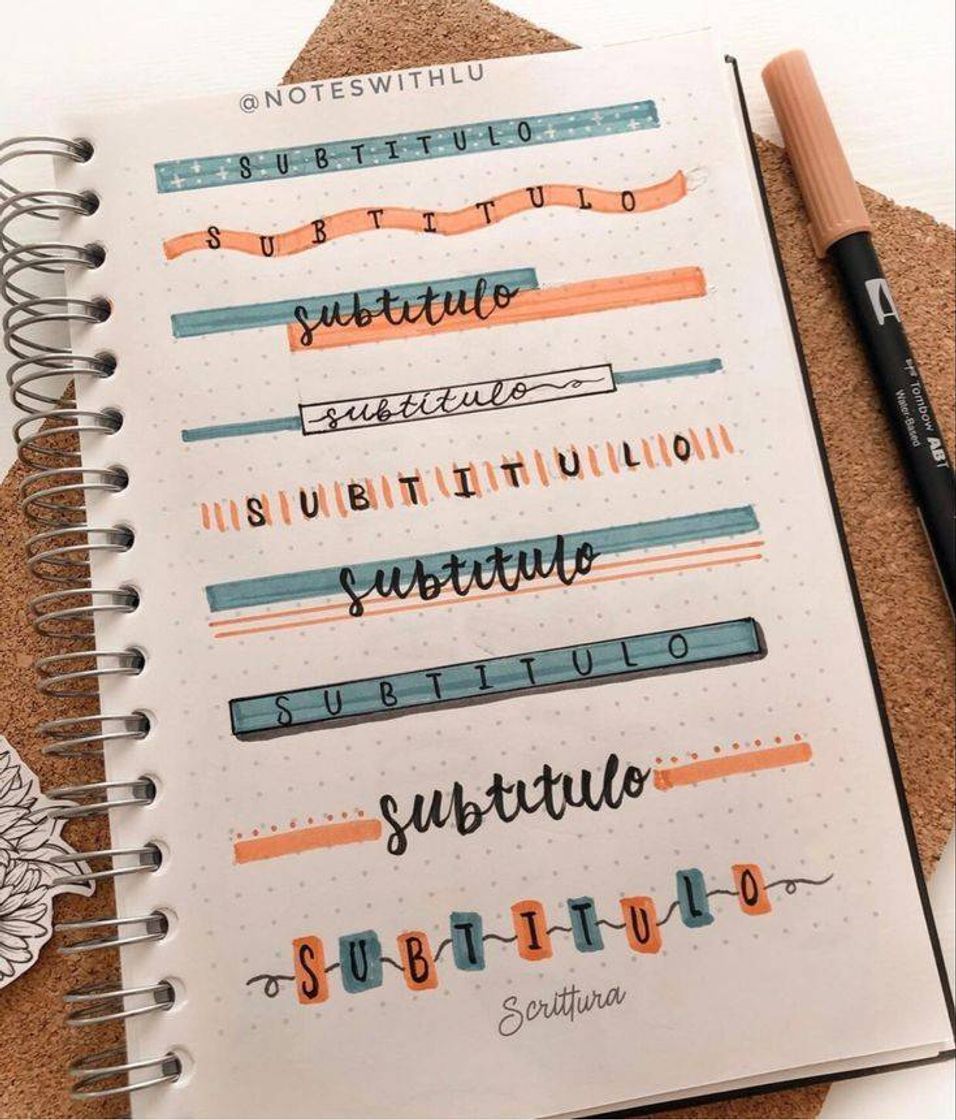 @NOTESWITHLU
SUBTITULO
SUBTITULO
subtitulo
subtitulo
SUBTITULO
subtitulo
SUBTITULO
subtitulo
SUBTITULO
Scrittura
Tombow AB
Water-Based